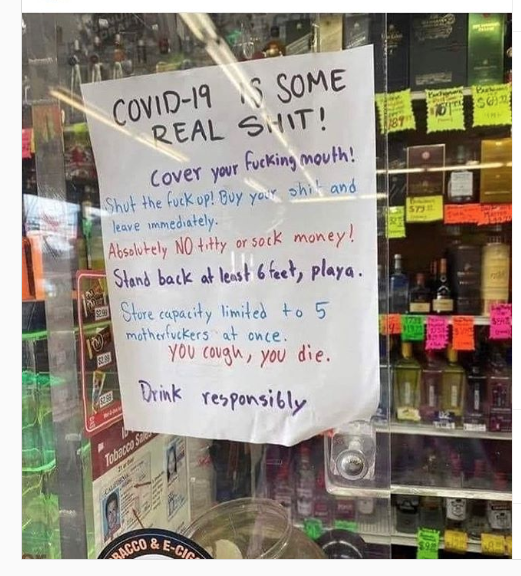 COVID-19 IS SOME
REAL SHIT!
Cover your fucking mouth!
Shut the fuck up! Buy your shit and
leave immediately.
Absolutely NO titty or sock money!
Stand back at least 6 feet, playa.
Store capacity limited to 5
motherfuckers at once.
you cough, you die.
Drink responsibly
Tobacco Sales
BACCO & E-CIG